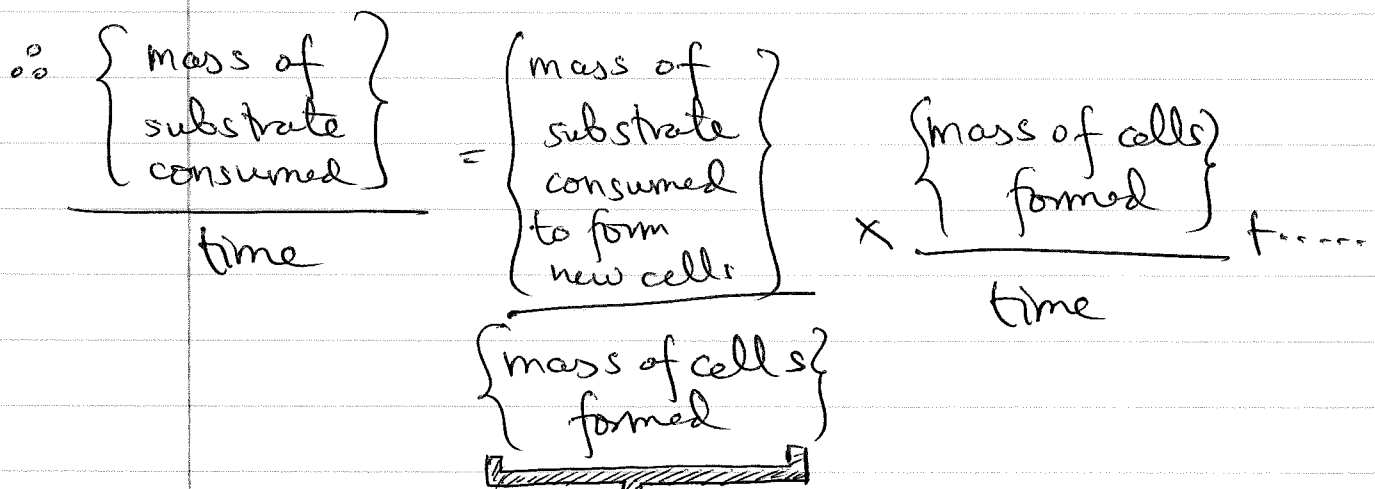 ∴ { mass of substrate consumed } / time = { mass of substrate consumed to form new cells } / { mass of cells formed } × { mass of cells formed } / time + .....